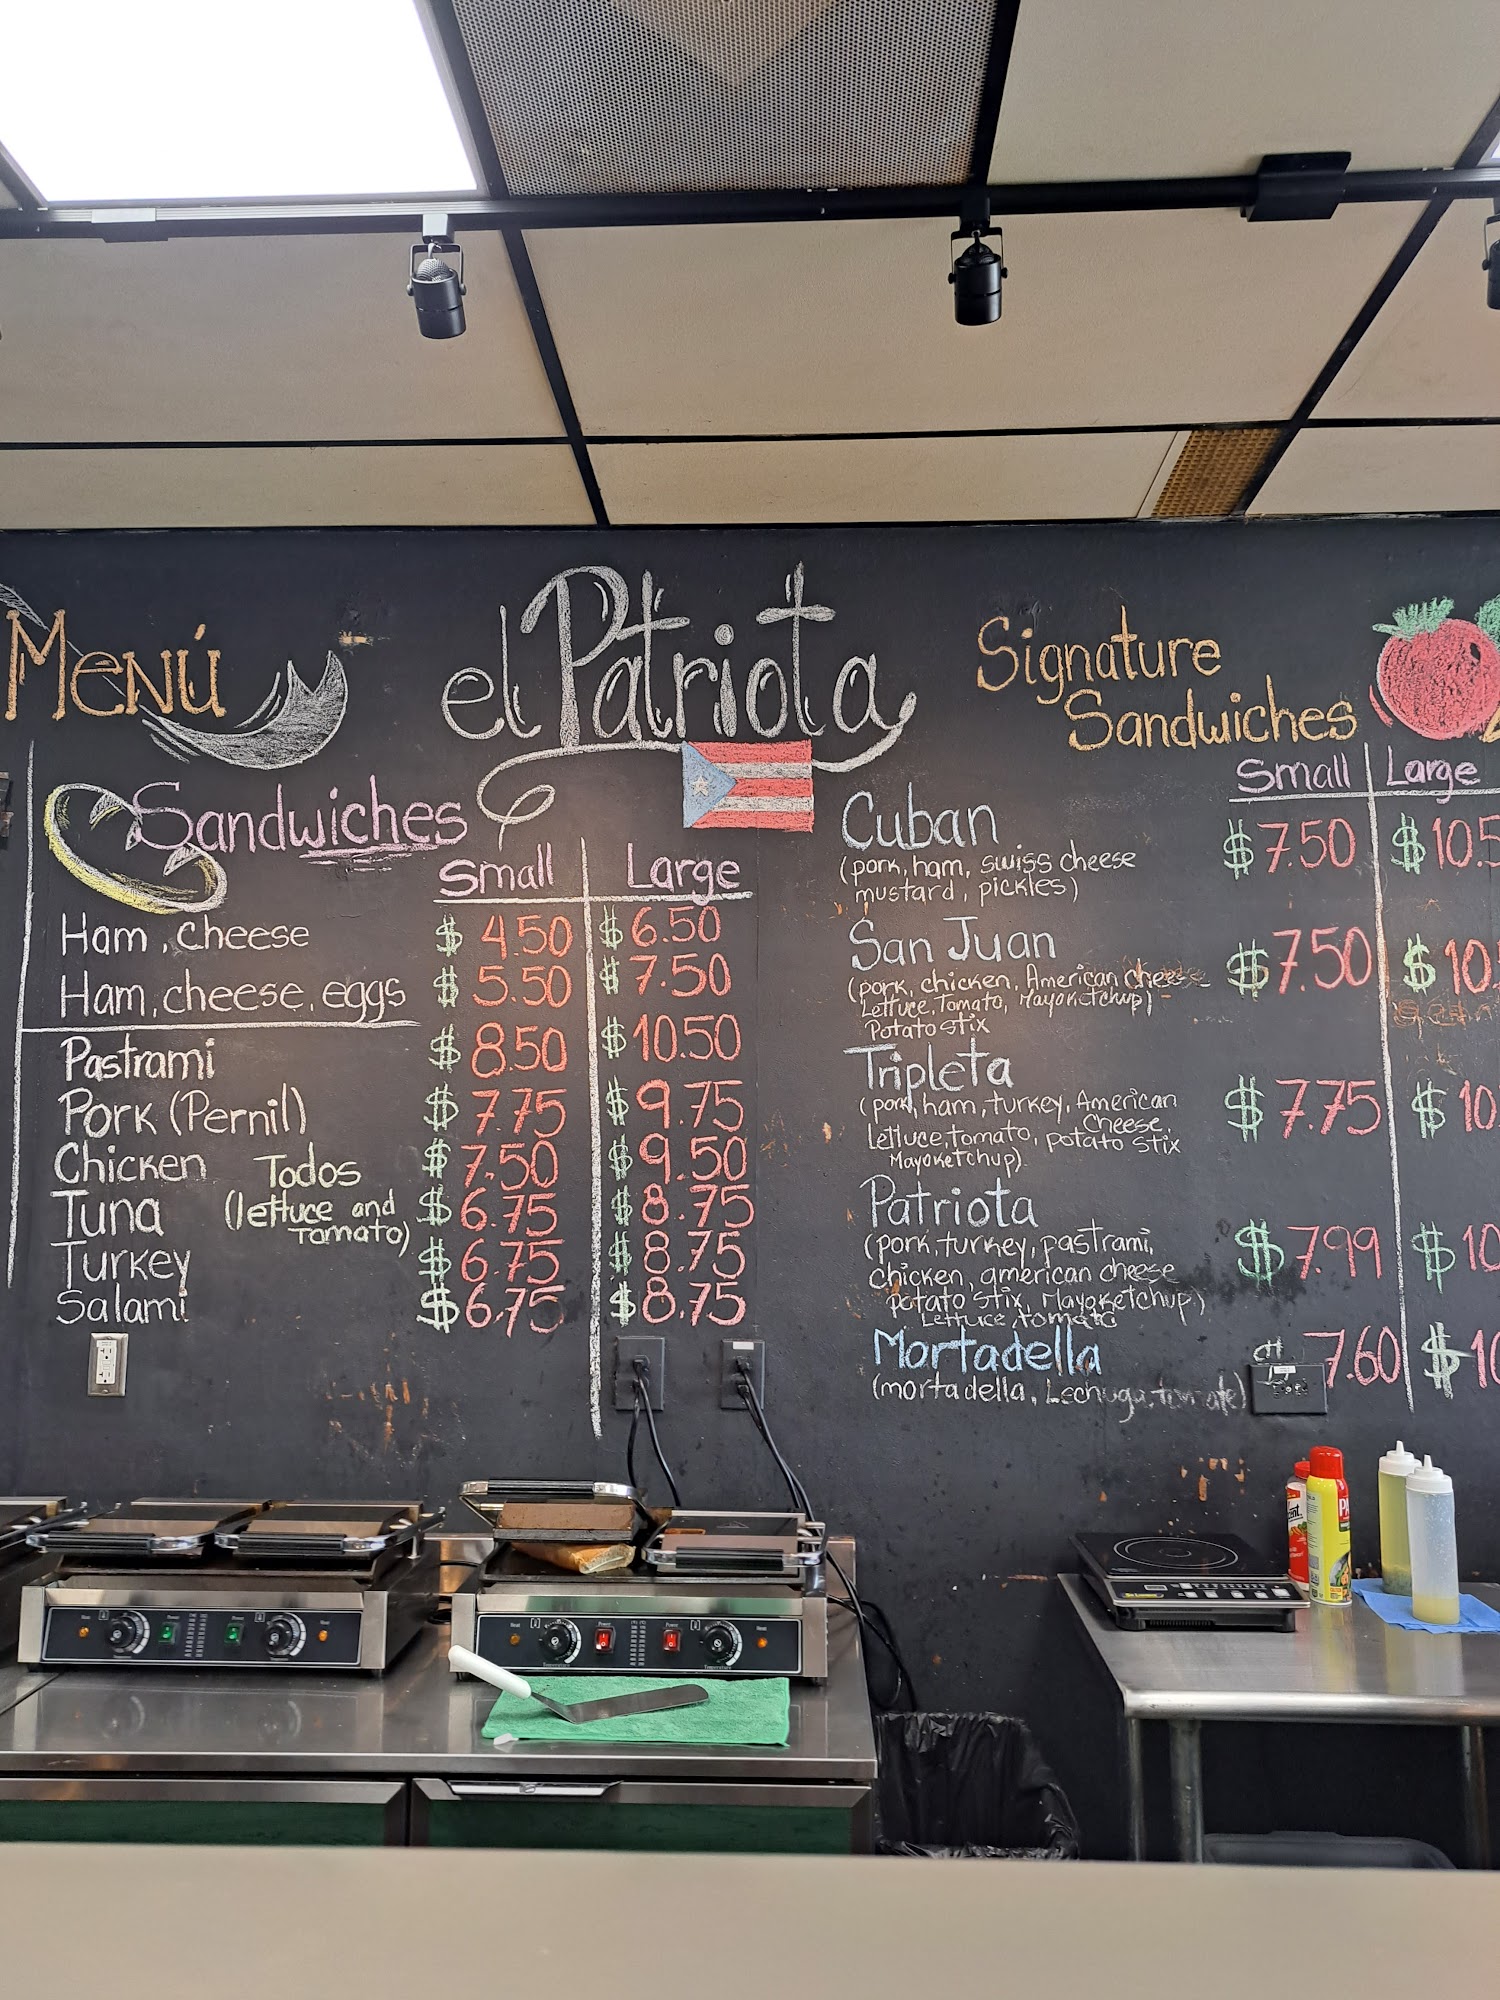 Menú
el Patriota
Sandwiches
Small Large
Ham, cheese $4.50 $6.50
Ham, cheese, eggs $5.50 $7.50
Pastrami $8.50 $10.50
Pork (Pernil) $7.75 $9.75
Chicken $7.50 $9.50
Tuna $6.75 $8.75
Turkey $6.75 $8.75
Salami $6.75 $8.75
Todos
(lettuce and
tomato)
Signature
Sandwiches
Small Large
Cuban $7.50 $10.5
(pork, ham, swiss cheese
mustard, pickles)
San Juan $7.50 $10.
(pork, chicken, American cheese
Lettuce, Tomato, Mayoketchup)
Potato stix
Tripleta $7.75 $10.
(pork, ham, turkey, American
cheese,
Lettuce, tomato, potato stix
Mayoketchup)
Patriota $7.99 $10
(pork, turkey, pastrami,
chicken, american cheese
potato stix, Mayoketchup)
Lettuce, tomato
Mortadella 7.60 $10
(mortadella, Lechuga, tomate)